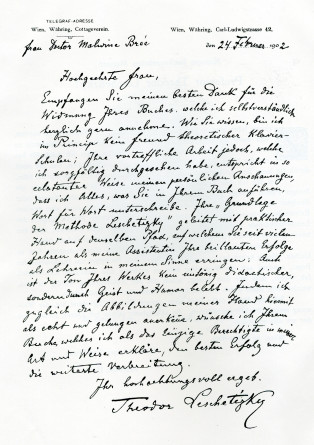 TELEGRAF-ADRESSE
Wien, Währing, Cottageverein. Wien, Währing, Carl-Ludwigstrasse 42.
Frau Doctor Malwine Brée den 24 Februar 1902
Hochgeehrte Frau,
Empfangen Sie meinen besten Dank für die
Widmung Ihres Buches, welche ich selbstverständlich
herzlich gern annehme. Wie Sie wissen, bin ich
im Princip kein Freund theoretischer Klavier-
Schulen; Ihre vortreffliche Arbeit jedoch, welche
ich sorgfältig durchgesehen habe, entspricht in so
eclatanter Weise meinen persönlichen Anschauungen,
dass ich Alles, was Sie in Ihrem Buch anführen,
Wort für Wort unterschreibe. Ihre „Grundlage
der Methode Leschetizky" geleitet mit praktischer
Hand auf denselben Pfad, auf welchem Sie seit vielen
Jahren als meine Assistentin Ihre brillanten Erfolge
als Lehrerin in meinem Sinne erringen. Auch
ist der Ton Ihres Werkes kein eintönig didactischer,
sondern durch Geist und Humor belebt. Indem ich
zugleich die Abbildungen meiner Hand hiemit
als echt und gelungen anerkenne, wünsche ich Ihrem
Buche, welches ich als das Einzige Berechtigte in meiner
Art und Weise erkläre, den besten Erfolg und
die weiteste Verbreitung.
Ihr hochachtungsvoll ergeb.
Theodor Leschetizky